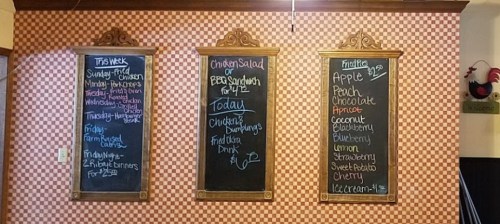 This Week
Sunday-Fried
Chicken
Monday-Pork Chops
Wednesday-Chicken
Thursday-Hamburger
Steak
Friday-
Farm Raised
Friday Night-
2 Ribeye Dinners
For
Chicken Salad
or
BBQ Sandwich
for
Today
Chicken &
Dumplings
Fried Okra
Drink
Fried Pies
Apple
Peach
Chocolate
Apricot
Coconut
Blackberry
Blueberry
Lemon
Strawberry
Sweet Potato
Cherry
Ice cream-